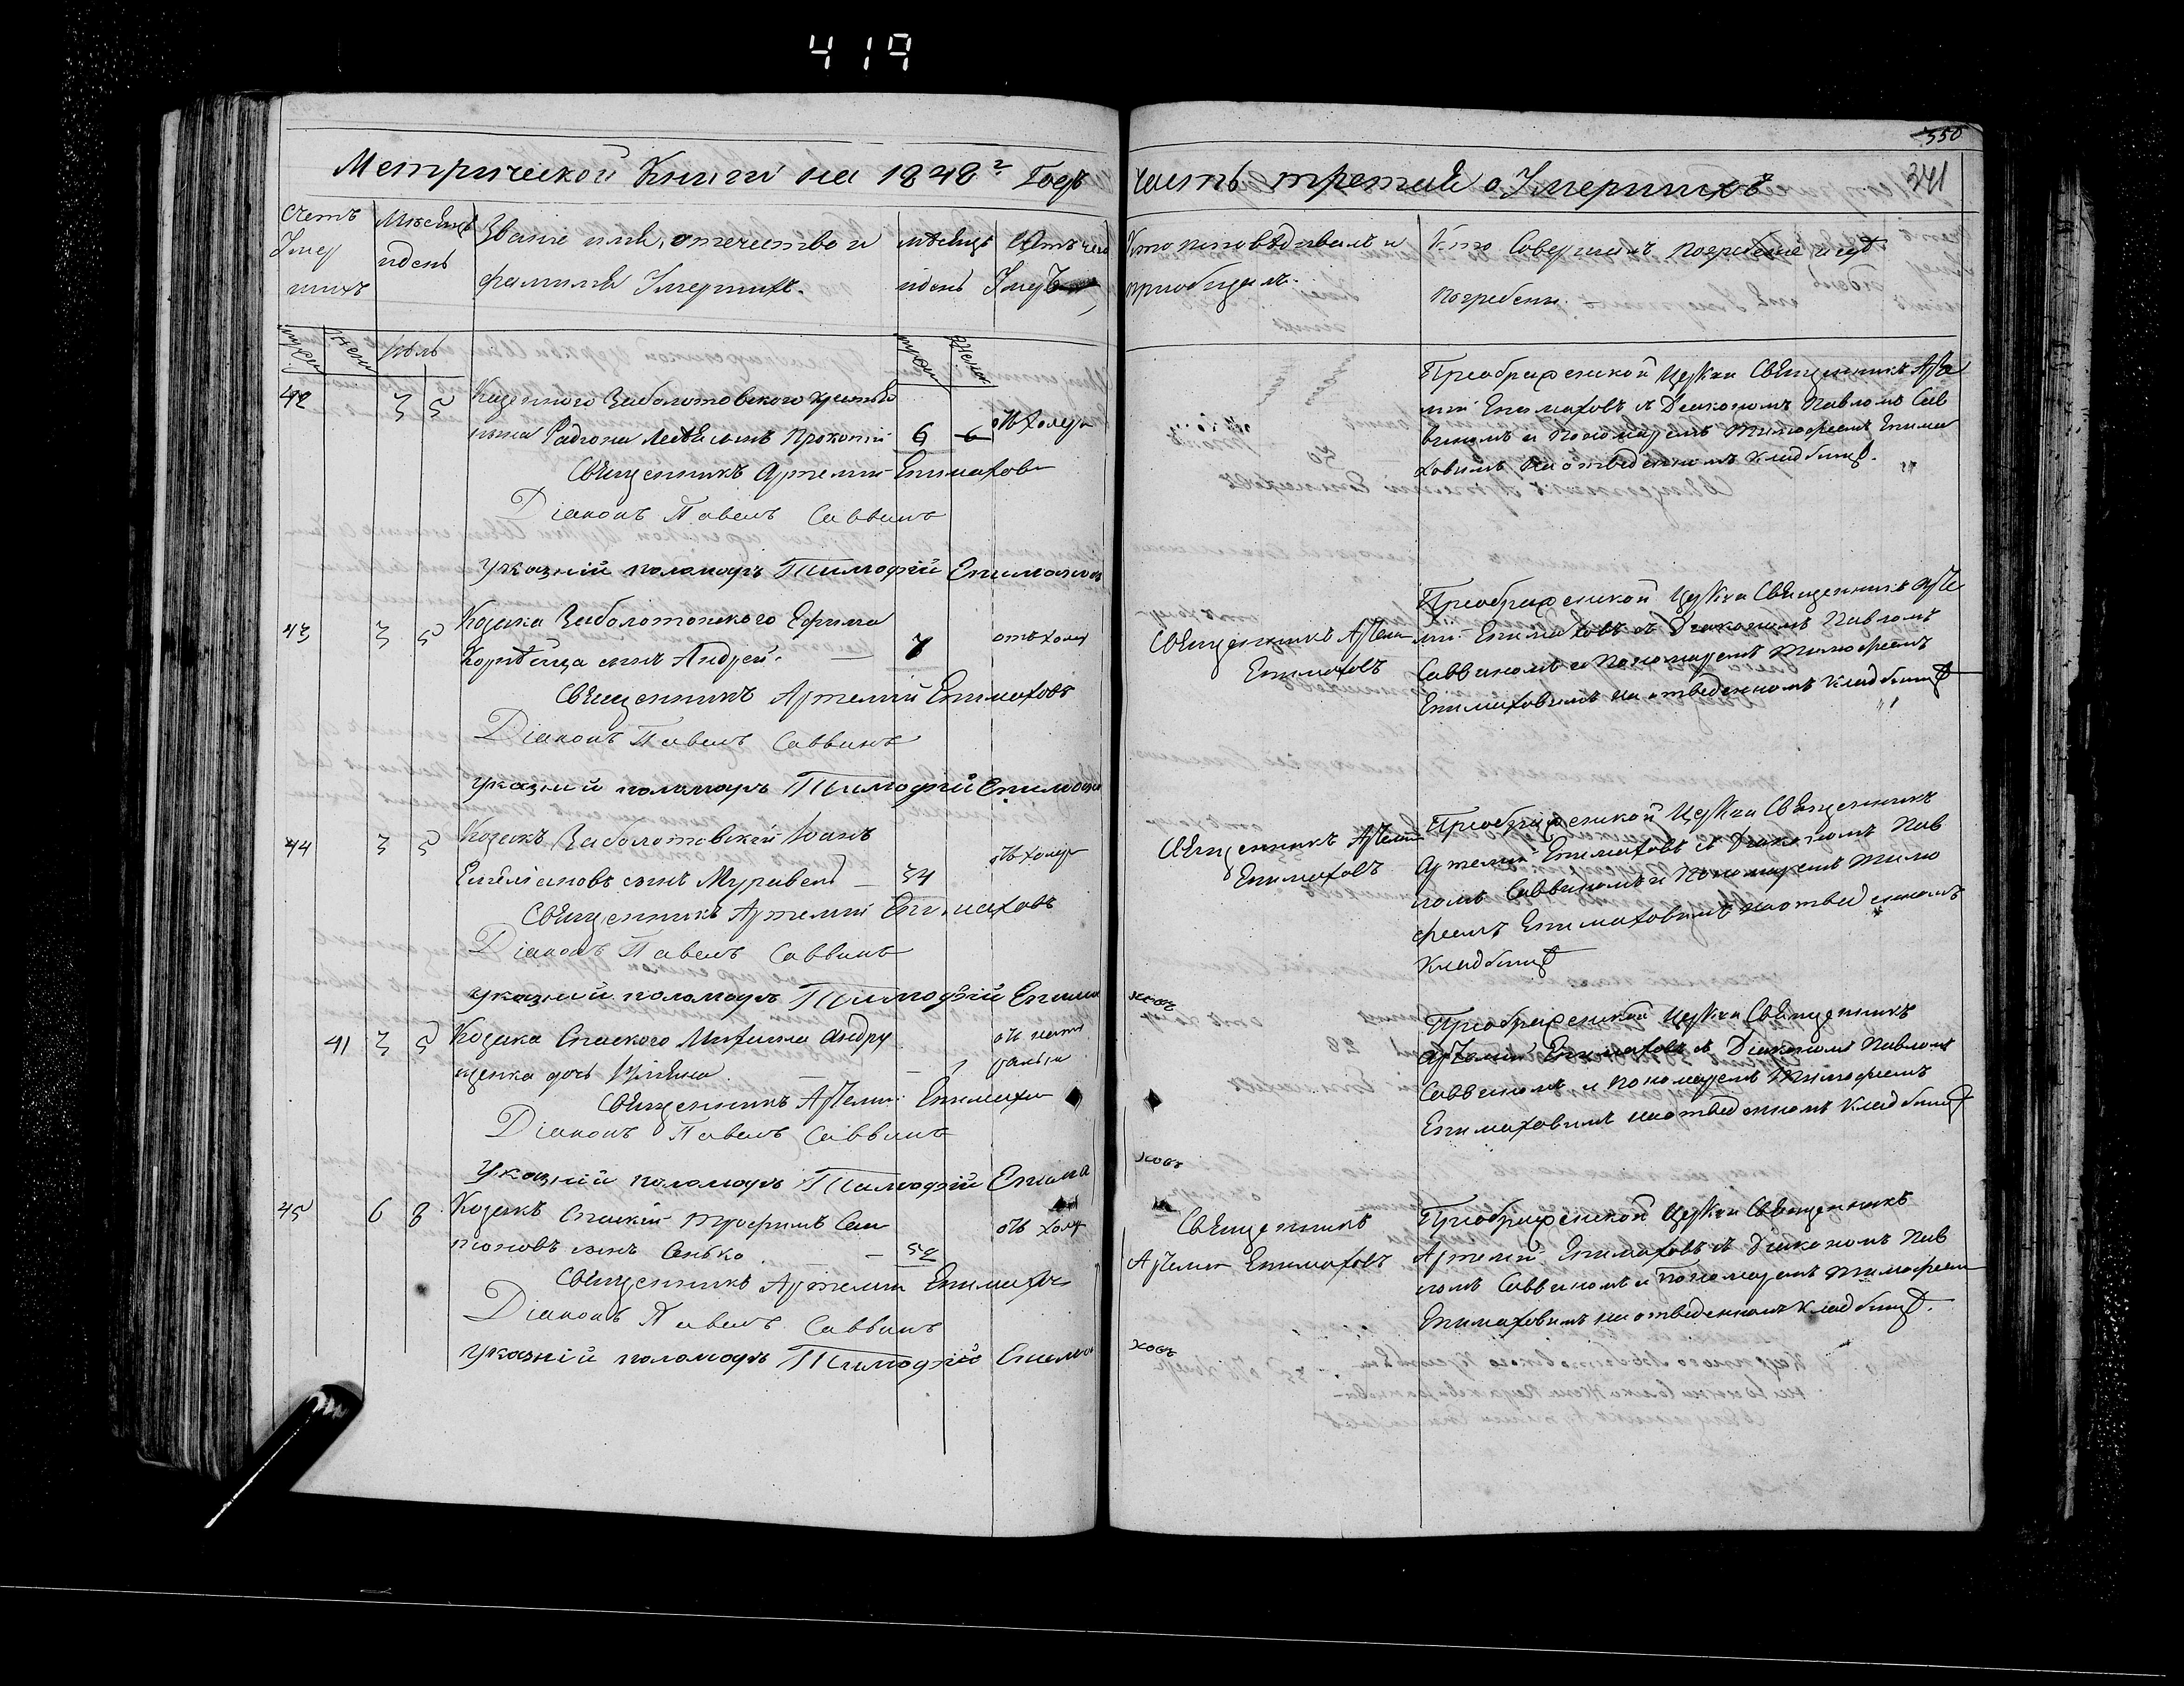 419
550
341
Метрической Книги на 1848г Годъ
часть третья о Умершихъ
Счетъ Умер шихъ
Месяцъ и день
Званіе имя, отчество и фамилія Умершихъ.
месяцъ и день
Отъ чего Умеръ
Кто исповедывалъ и приобщалъ.
Кто Совершалъ погребеніе и где погребены.
муж
жен
Іюль
муж
женс
42 3 5
Казеннаго Заболотовского крестья
нина Радіона сынъ Прокопій 6 отъ холер
Священникъ Артемий Епимахов
Діаконъ Павелъ Саввинъ
Указній поломарь Тимофій Епимахов
Преображенской Церкви Священникъ Арте
мий Епимаховъ съ Диакономъ Павломъ Сав
винымъ и Пономаремъ Тимофеемъ Епима
ховимъ на отведенномъ кладбище.
43 3 5
Козака Заболотовского Ефима
сынъ Андрей. 7 отъ холер
Священникъ Артемій Епимаховъ
Діаконъ Павелъ Саввинъ
Указний поломарь Тимофій Епимахов
Священникъ Артемий
Епимаховъ
Преображенской Церкви Священникъ Арте
мий Епимаховъ съ Диакономъ Павломъ
Саввиномъ и Пономаремъ Тимофеемъ
Епимаховимъ на отведенномъ кладбище
44 3 5
Козакъ Заболотовскій Іоанъ
Емельяновъ сынъ Муравель 34 отъ холер
Священникъ Артемий Епимаховъ
Діаконъ Павелъ Саввинъ
Указний поломарь Тимофій Епима
ховъ
Священникъ Артемий
Епимаховъ
Преображенской Церкви Священникъ
Артемий Епимаховъ съ Диакономъ Пав
ломъ Саввиномъ и Пономаремъ Тимо
феемъ Епимаховимъ на отведенномъ
кладбище
41 3 5
Козака Спаского Михаила Андру
щенка дочь
Священникъ Артемий Епимахов
Діаконъ Павелъ Саввинъ
Указній поломарь Тимофій Епима
ховъ
Преображенской Церкви Священникъ
Артемий Епимаховъ съ Диакономъ Павломъ
Саввиномъ и Пономаремъ Тимофеемъ
Епимаховимъ на отведенномъ кладбище
45 6 8
Козакъ Спаскій Трофимъ Сам
соновъ сынъ Сенько 52 отъ холер
Священникъ Артемий Епимахов
Діаконъ Павелъ Саввинъ
Указній поломарь Тимофій Епима
ховъ
Священникъ
Артемий Епимаховъ
Преображенской Церкви Священникъ
Артемий Епимаховъ съ Диакономъ Пав
ломъ Саввиномъ и Пономаремъ Тимофеем
Епимаховимъ на отведенномъ кладбище.